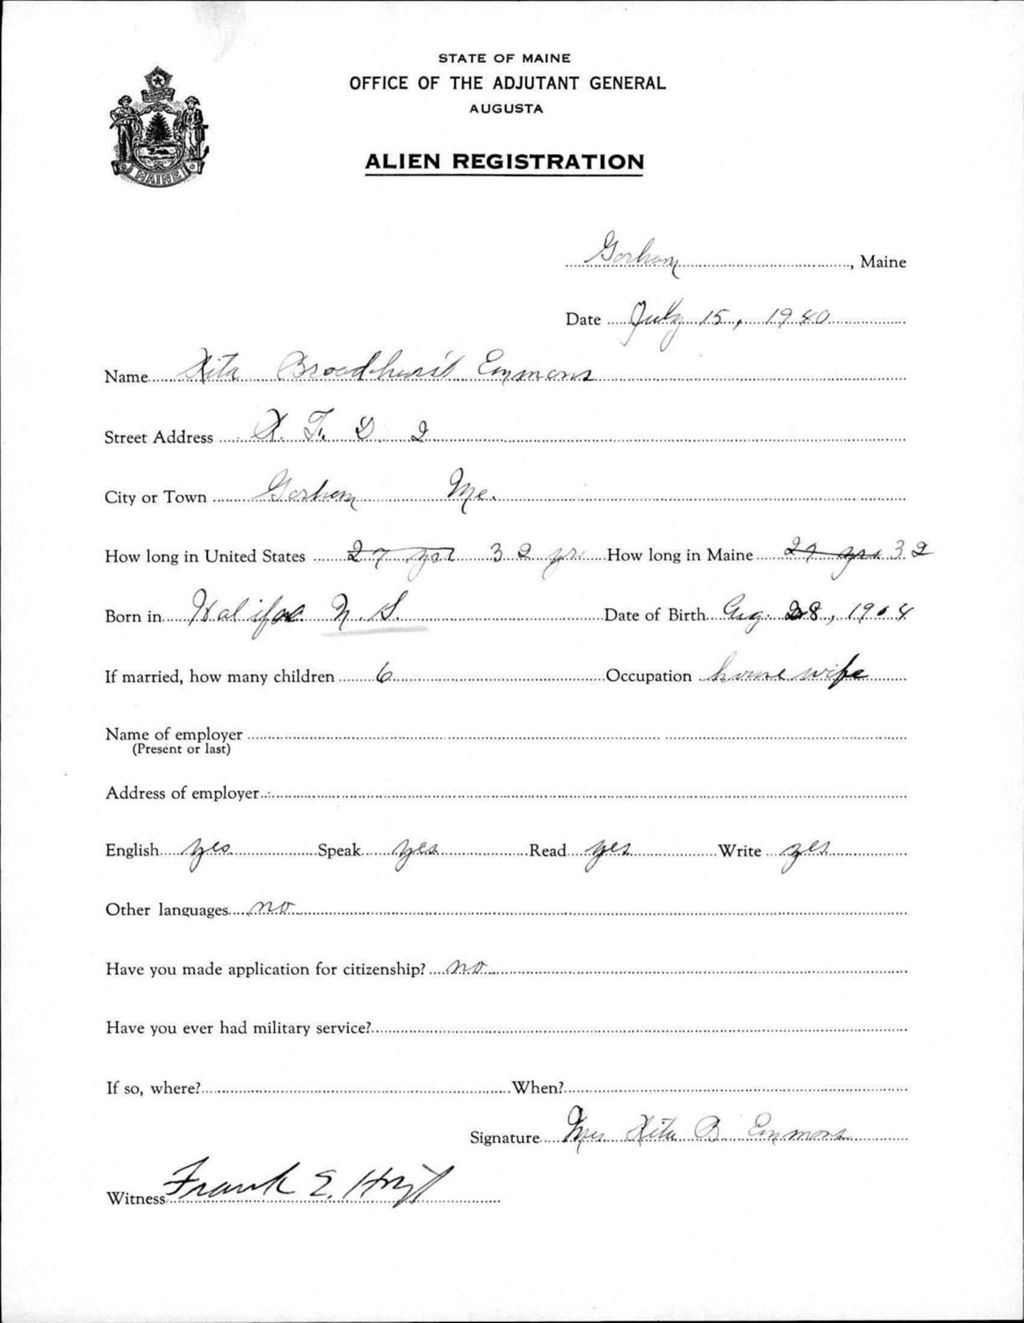 STATE OF MAINE
OFFICE OF THE ADJUTANT GENERAL
AUGUSTA
MAINE
ALIEN REGISTRATION
Gorham, Maine
Date July 15, 1940
Name Rita Broadhurst Emmons
Street Address R. F. D 2
City or Town Gorham Me.
How long in United States 27 yrs 32 yr. How long in Maine 27 yrs 32
Born in Halifax N.S. Date of Birth Aug. 28, 1904
If married, how many children 6 Occupation housewife
Name of employer
(Present or last)
Address of employer
English yes Speak yes Read yes Write yes
Other languages no
Have you made application for citizenship? no
Have you ever had military service?
If so, where? When?
Signature Mrs Rita B Emmons
Witness Frank E. Hoyt